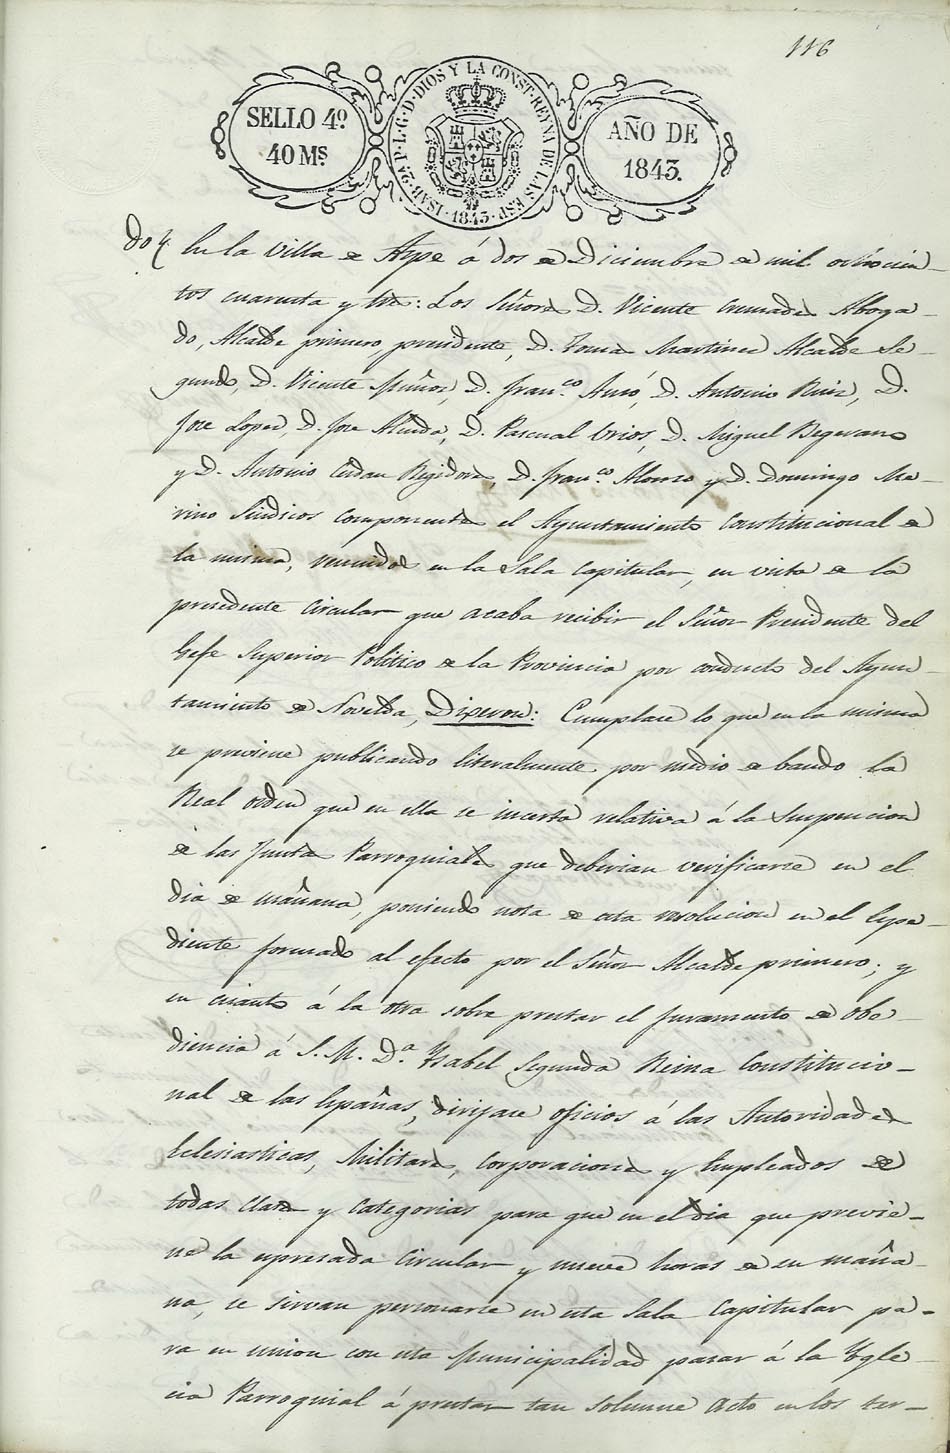 116
SELLO 4º
40 Mˢ
ISAB. 2ª P. L. G. D. DIOS Y LA CONST. REYNA DE LAS ESP. 1843
AÑO DE
1843.
En la Villa de Aspe á dos de Diciembre de mil ochocien-
tos cuarenta y tres: Los Señores D. Vicente Cremades Aboga-
do, Alcalde primero, presidente, D. Tomas Martinez Alcalde Se-
gundo, D. Vicente Muñoz, D. Franco. D. Antonio Ruiz, D.
Jose Lopez, D. Jose Alcida, D. Pascual Urios, D. Miguel
y D. Antonio Regidores, D. Franco. Alonso y D. Domingo Ma-
rino Sindicos componentes el Ayuntamiento Constitucional de
la misma, reunidos en la Sala Capitular, en vista de la
precedente Circular que acaba recibir el Señor Presidente del
Gefe Superior Politico de la Provincia por conducto del Ayun-
tamiento de Novelda, Dixeron: Cumplase lo que en la misma
se previene publicando literalmente por medio de bando la
Real orden que en ella se incerta relativa á la Suspencion
de las Juntas Parroquiales que deberian verificarse en el
dia de mañana, poniendo nota de esta resolucion en el Espe-
diente formado al efecto por el Señor Alcalde primero; y
en cuanto á la otra sobre prestar el Juramento de obe-
diencia á S. M. Dª Ysabel Segunda Reina Constitucio-
nal de las Españas, dirijase oficios á las Autoridades
Eclesiasticas, Militares, Corporaciones y Empleados de
todas clases y categorias para que en el dia que previe-
ne la espresada Circular y nueve horas de su maña-
na, se sirvan personarse en esta Sala Capitular pa-
ra en union con esta Municipalidad pasar á la Ygle-
cia Parroquial á prestar tan solemne acto en los ter-